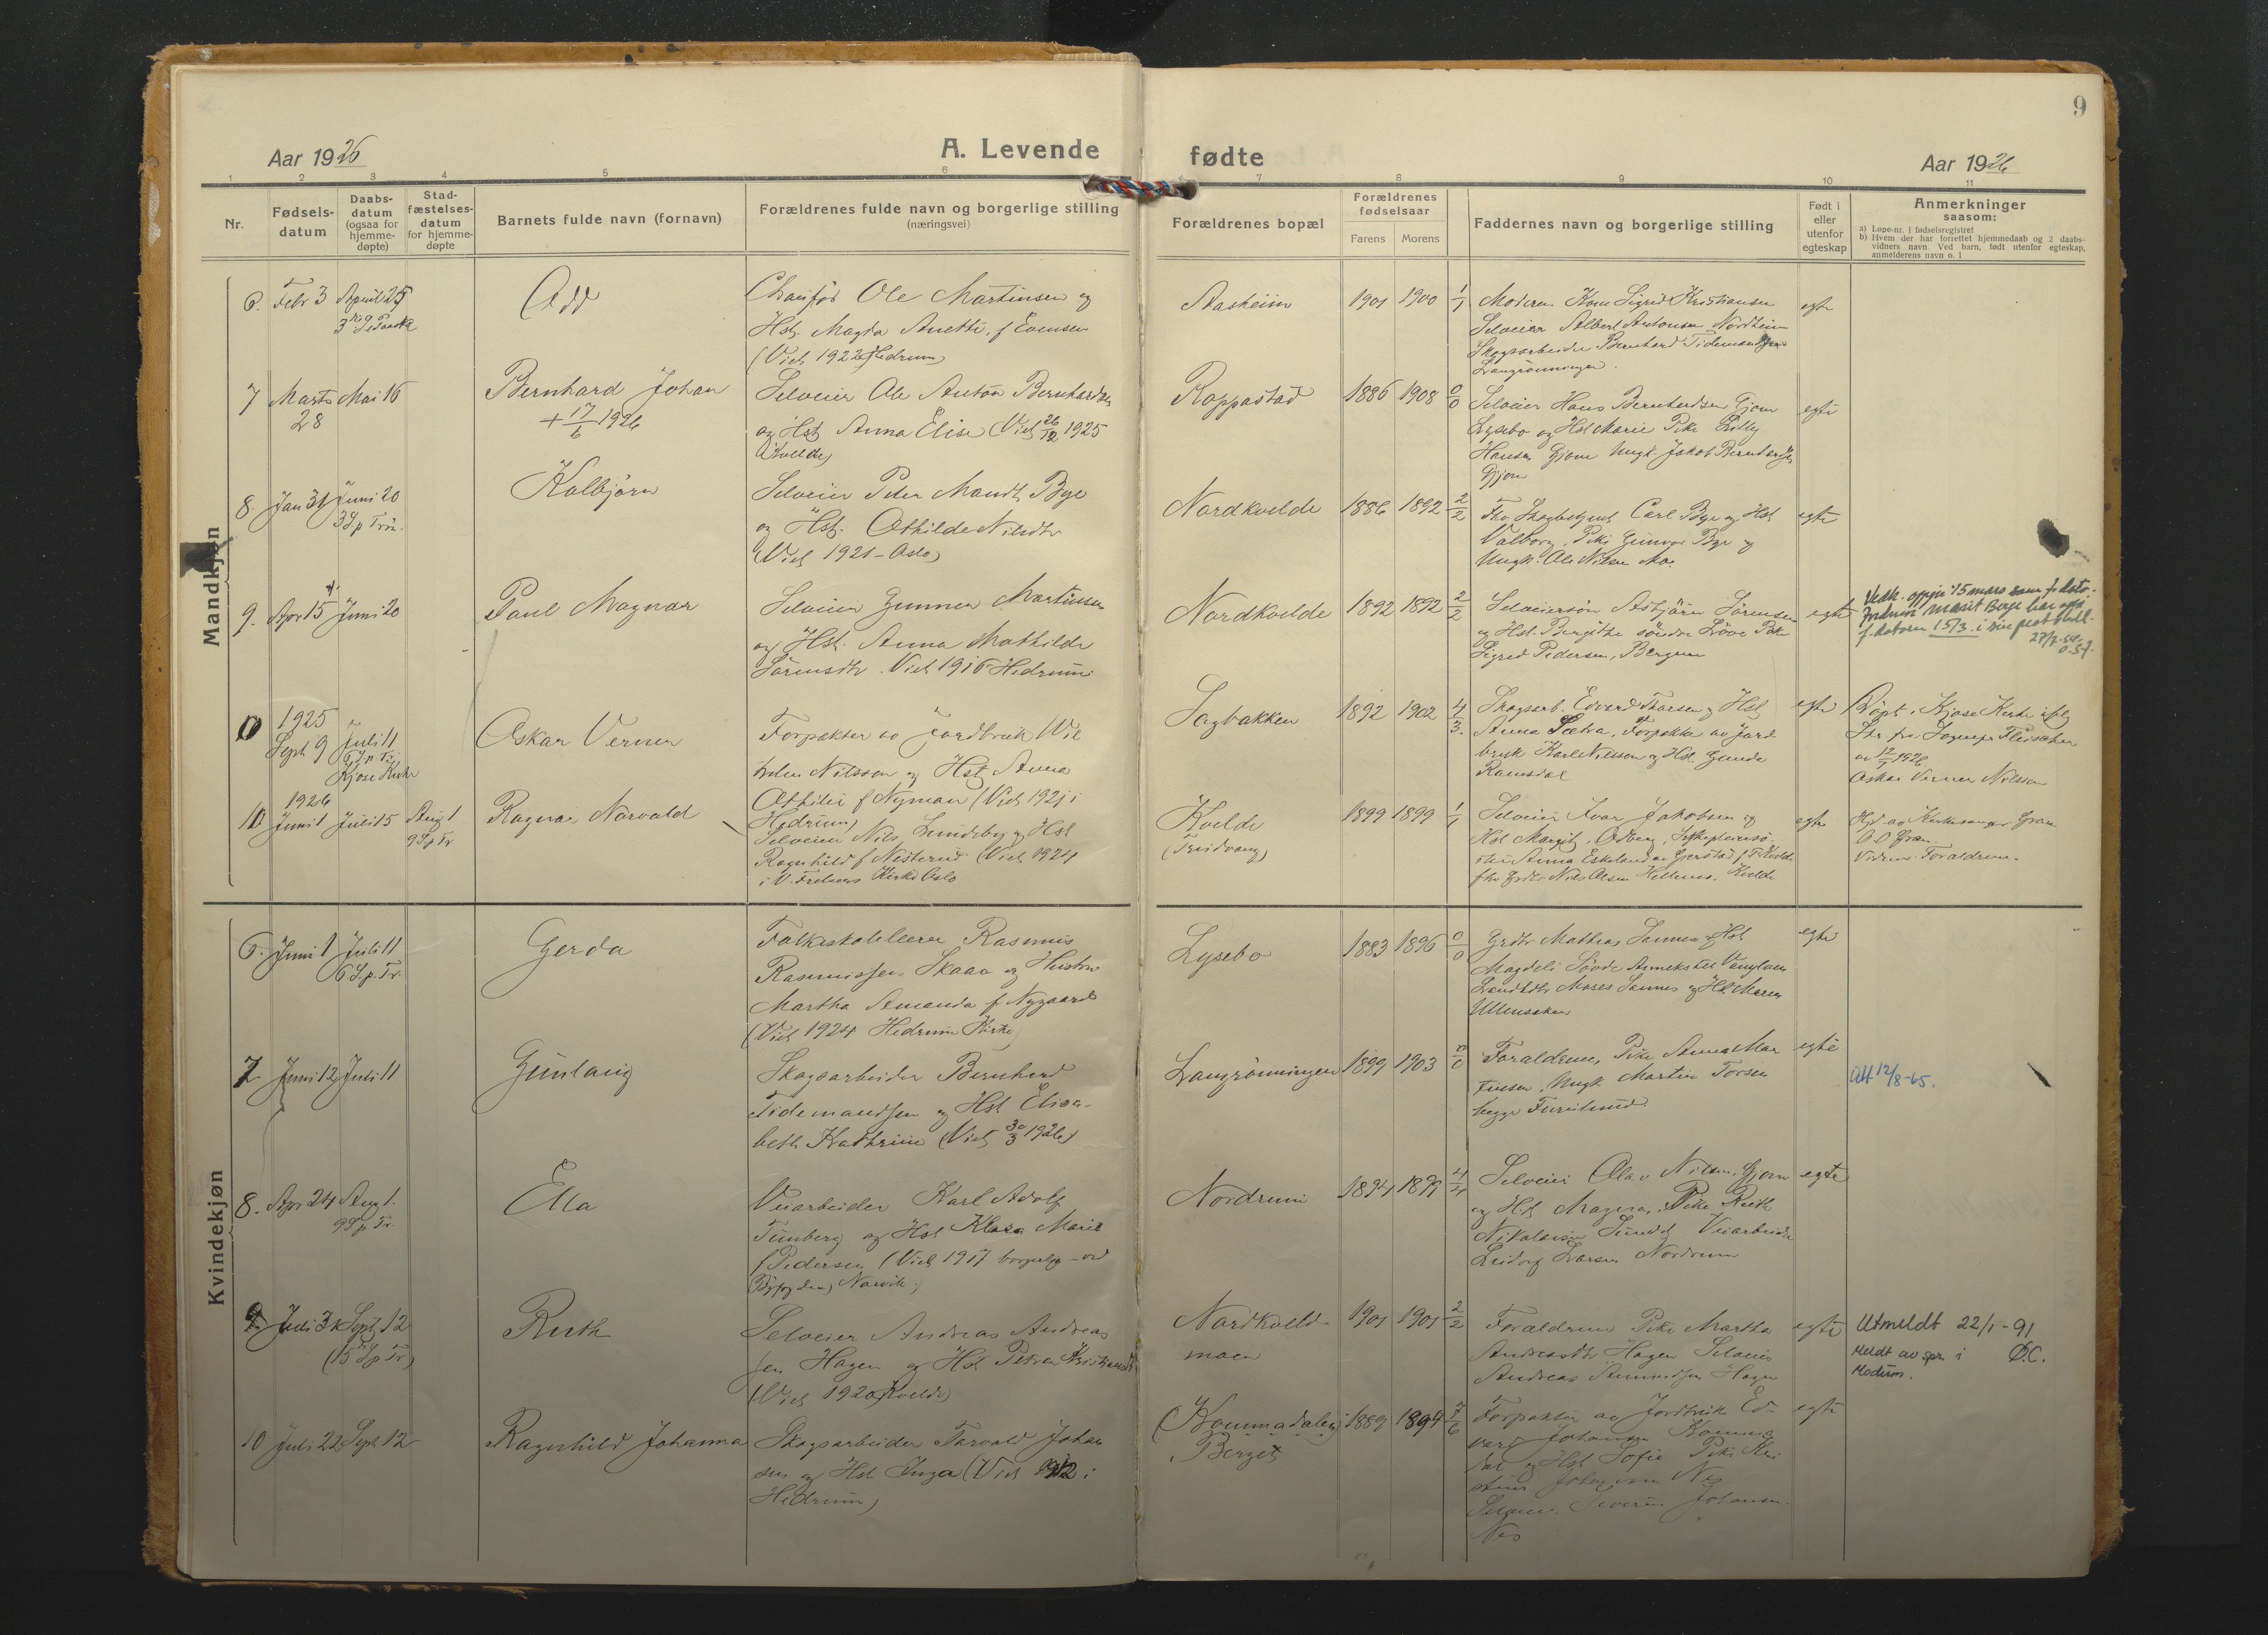 Aar 1926
A. Levende
1 2 3 4 5 6
Nr.
Fødsels-
datum
Daabs-
datum
(ogsaa for
hjemme-
døpte)
Stad-
fæstelses-
datum
for hjemme-
døpte
Barnets fulde navn (fornavn)
Forældrenes fulde navn og borgerlige stilling
(næringsvei)
Mandkjøn
6. Febr 3 April 25
3 S. e. Paaske
Odd
Chaufför Ole Martinsen og
Hst. Magda Anette, f Evensen
(Viet 1922 Hedrum)
7 Marts Mai 16
28
Bernhard Johan
+ 17/6 1926
Selveier Ole Anton Bernhardsen
og Hst Anna Elise (Viet 26/12 1925
i Kvelde)
8. Jan 31 Juni 20
3 S p Trin.
Kolbjörn
Selveier Peter Mandt Bye
og Hst. Othilde Nilsdtr
(Viet 1921 - Oslo)
9. Apr 15 Juni 20
Paul Magnar
Selveier Gunnar Martinsen
og Hst. Anna Mathilde
Sörensdtr. Viet 1916 Hedrum
1925
Sept 9 Juli 11
6 S. p. Tr.
Kjose Kirke
Oskar Verner
Forpakter av Jordbruk Wil
helm Nilsson og Hst Anna
Othilie f Nyman (Viet 1921 i
Hedrum)
1926
10 Juni 1 Juli 5 Aug 1
9 S p Tr
Ragnar Norvald
Selveier Nils Sundeby og Hst
Ragnhild f Nesterud (Viet 1924
i V. Frelsers Kirke Oslo
Kvindekjøn
6. Juni 1 Juli 11
6 S. p. Tr.
Gerda
Folkeskolelærer Rasmus
Rasmussen Skaao og Hustru
Martha Amanda f Nygaard
(Viet 1924 Hedrum Kirke)
7. Juni 12 Juli 11
Gunlaug
Skogsarbeider Bernhard
Tidemandsen og Hst Elisa-
beth Kathrine (Viet 30/3 1926)
8. Apr 24 Aug 1.
9 S p Tr.
Ella
Veiarbeider Karl Adolf
Timberg og Hst Klara Marie
f Pedersen (Viet 1917 borgerlig - ved
Byfogden, Narvik)
9. Juli 31 Sept 12
(15 S p Tr)
Ruth
Selveier Andreas Andreas
sen Hagen og Hst Petra Kristiansdtr
(Viet 1920 Kvelde)
10 Juli 22 Sept 12
Ragnhild Johanna
Skogsarbeider Torvald Johan
sen og Hst Inga (Viet 1912 i
Hedrum)
9
fødte
Aar 1926
7 8 9 10 11
Forældrenes bopæl
Forældrenes
fødselsaar
Farens Morens
Faddernes navn og borgerlige stilling
Født i
eller
utenfor
egteskap
Anmerkninger
saasom:
a) Løpe-nr. i fødselsregistret
b) Hvem der har forrettet hjemmedaab og 2 daabs-
vidners navn. Ved barn, født utenfor egteskap,
anmelderens navn o. l
Aasheim 1901 1900 1/1
Moderen Kone Sigrid Kristiansen
Selveier Albert Antonsen Nordheim
Skogsarbeider Bernhard Tidemandsen
Langrönningen.
egte
Roppestad 1886 1908 0/0
Selveier Hans Bernhardsen Gjone
Lysebo og Hst Marie Pike Lilly
Hansen Gjone Ungk. Jakob Bernhardsen
Gjone
egte
Nordkvelde 1886 1892 2/2
Carl Bye og Hst
Valborg, Pike Gunvor Bye og
Ungk. Ole Nilsen Mo.
egte
Nordkvelde 1892 1892 2/2
Selveiersön Asbjörn Sörensen
og Hst. Bergithe söndre Löve Pike
Sigrid Pedersen, Bergum
egte
Vedk. oppgir 15 mars som f. dato.
Jordmor Marit Berge har opp
f. datoen 15/3. i sin
Sagbakken 1892 1902 4/3
Skogsarb. Edvard Thorsen og Hst
Anna Sætra, Forpakter av Jord
bruk Karl Nilsson og Hst. Gunda
Ramsdal
egte
Döpt i Kjose Kirke ifölg
Str fra Sognepr Fleischer
av 12/7 1926
Oskar Verner Nilson
Kvelde
(Fredvang)
1899 1899 1/1
Selveier Ivar Jakobsen og
Hst Margit, Odberg,
Anna Eskeland av Gjerstad
Nils Olsen Hellenes. Kvelde
egte
Hjd. av Kirkesanger Gran
O. O Gran.
Vidner: Forældrene.
Lysebo 1883 1896 0/0
Grdbr Mathias Sannes og Hst
Magdeli Löve
Landhdlr Moses Sannes og Hst Maren
Ullensaker
egte
Langrönningen 1899 1903 0/0
Forældrene, Pike Anna Mar
tinsen, Ungk Martin Torsen
begge Furulund.
egte
Att 12/8-65.
Nordrum 1894 1899 4/4
Selveier Olav Nilsen Gjone
og Hst Magna, Pike Ruth
Nikolaisen Sundet Veiarbeider
Leidorf Larsen Nordrum
egte
Nordkveld-
moen
1901 1901 2/2
Forældrene Pike Martha
Andreasdtr Hagen Selveier
Andreas Amundsen Hagen
egte
Utmeldt 22/1-91
Meldt av spr. i Ø.C.
Modum.
(Kommadalen)
Berget
1889 1894 7/6
Forpakter av Jordbruk Ed-
vard Johansen Komma
dal og Hst Sofie Pike Kri
stine Johansen Nes
Selveier Severin Johansen
Nes
egte